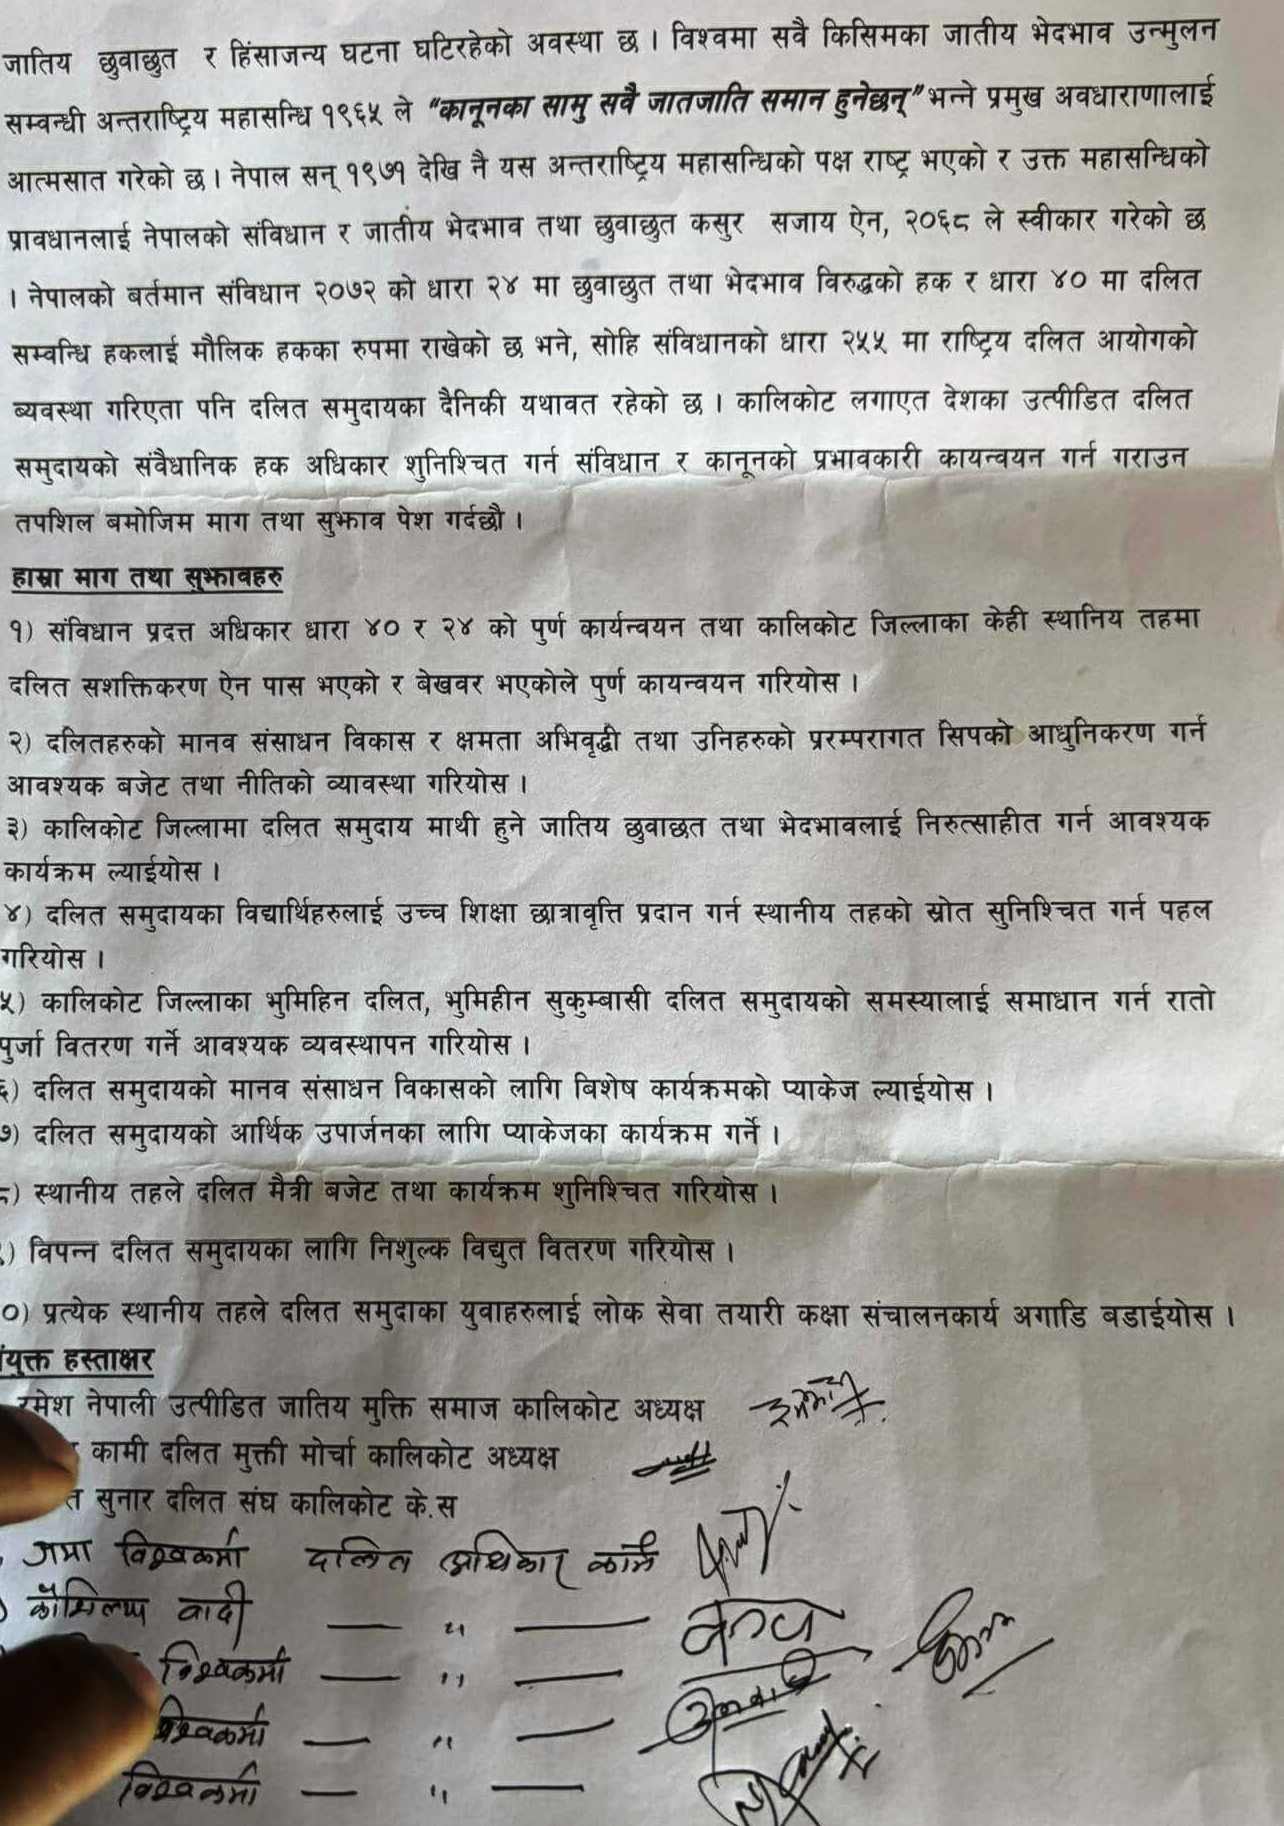 जातिय छुवाछुत र हिंसाजन्य घटना घटिरहेको अवस्था छ । विश्वमा सवै किसिमका जातीय भेदभाव उन्मुलन
सम्वन्धी अन्तराष्ट्रिय महासन्धि १९६५ ले "कानूनका सामु सवै जातजाति समान हुनेछन्" भन्ने प्रमुख अवधाराणालाई
आत्मसात गरेको छ । नेपाल सन् १९७१ देखि नै यस अन्तराष्ट्रिय महासन्धिको पक्ष राष्ट्र भएको र उक्त महासन्धिको
प्रावधानलाई नेपालको संविधान र जातीय भेदभाव तथा छुवाछुत कसुर सजाय ऐन, २०६८ ले स्वीकार गरेको छ
। नेपालको बर्तमान संविधान २०७२ को धारा २४ मा छुवाछुत तथा भेदभाव विरुद्धको हक र धारा ४० मा दलित
सम्वन्धि हकलाई मौलिक हकका रुपमा राखेको छ भने, सोहि संविधानको धारा २५५ मा राष्ट्रिय दलित आयोगको
ब्यवस्था गरिएता पनि दलित समुदायका दैनिकी यथावत रहेको छ । कालिकोट लगाएत देशका उत्पीडित दलित
समुदायको संवैधानिक हक अधिकार शुनिश्चित गर्न संविधान र कानूनको प्रभावकारी कायन्वयन गर्न गराउन
तपशिल बमोजिम माग तथा सुझाव पेश गर्दछौ ।
हाम्रा माग तथा सुझावहरु
१) संविधान प्रदत्त अधिकार धारा ४० र २४ को पुर्ण कार्यन्वयन तथा कालिकोट जिल्लाका केही स्थानिय तहमा
दलित सशक्तिकरण ऐन पास भएको र बेखवर भएकोले पुर्ण कायन्वयन गरियोस ।
२) दलितहरुको मानव संसाधन विकास र क्षमता अभिवृद्धी तथा उनिहरुको प्ररम्परागत सिपको आधुनिकरण गर्न
आवश्यक बजेट तथा नीतिको व्यावस्था गरियोस ।
३) कालिकोट जिल्लामा दलित समुदाय माथी हुने जातिय छुवाछत तथा भेदभावलाई निरुत्साहीत गर्न आवश्यक
कार्यक्रम ल्याईयोस ।
४) दलित समुदायका विद्यार्थिहरुलाई उच्च शिक्षा छात्रावृत्ति प्रदान गर्न स्थानीय तहको स्रोत सुनिश्चित गर्न पहल
गरियोस ।
५) कालिकोट जिल्लाका भुमिहिन दलित, भुमिहीन सुकुम्बासी दलित समुदायको समस्यालाई समाधान गर्न रातो
पुर्जा वितरण गर्ने आवश्यक व्यवस्थापन गरियोस ।
६) दलित समुदायको मानव संसाधन विकासको लागि बिशेष कार्यक्रमको प्याकेज ल्याईयोस ।
७) दलित समुदायको आर्थिक उपार्जनका लागि प्याकेजका कार्यक्रम गर्ने ।
८) स्थानीय तहले दलित मैत्री बजेट तथा कार्यक्रम शुनिश्चित गरियोस ।
) विपन्न दलित समुदायका लागि निशुल्क विद्युत वितरण गरियोस ।
०) प्रत्येक स्थानीय तहले दलित समुदाका युवाहरुलाई लोक सेवा तयारी कक्षा संचालनकार्य अगाडि बडाईयोस ।
संयुक्त हस्ताक्षर
रमेश नेपाली उत्पीडित जातिय मुक्ति समाज कालिकोट अध्यक्ष
कामी दलित मुक्ती मोर्चा कालिकोट अध्यक्ष
त सुनार दलित संघ कालिकोट के.स
विश्वकर्मा दलित अधिकार कर्मी
वादी — " —
विश्वकर्मा — " —
विश्वकर्मा — " —
विश्वकर्मा — " —